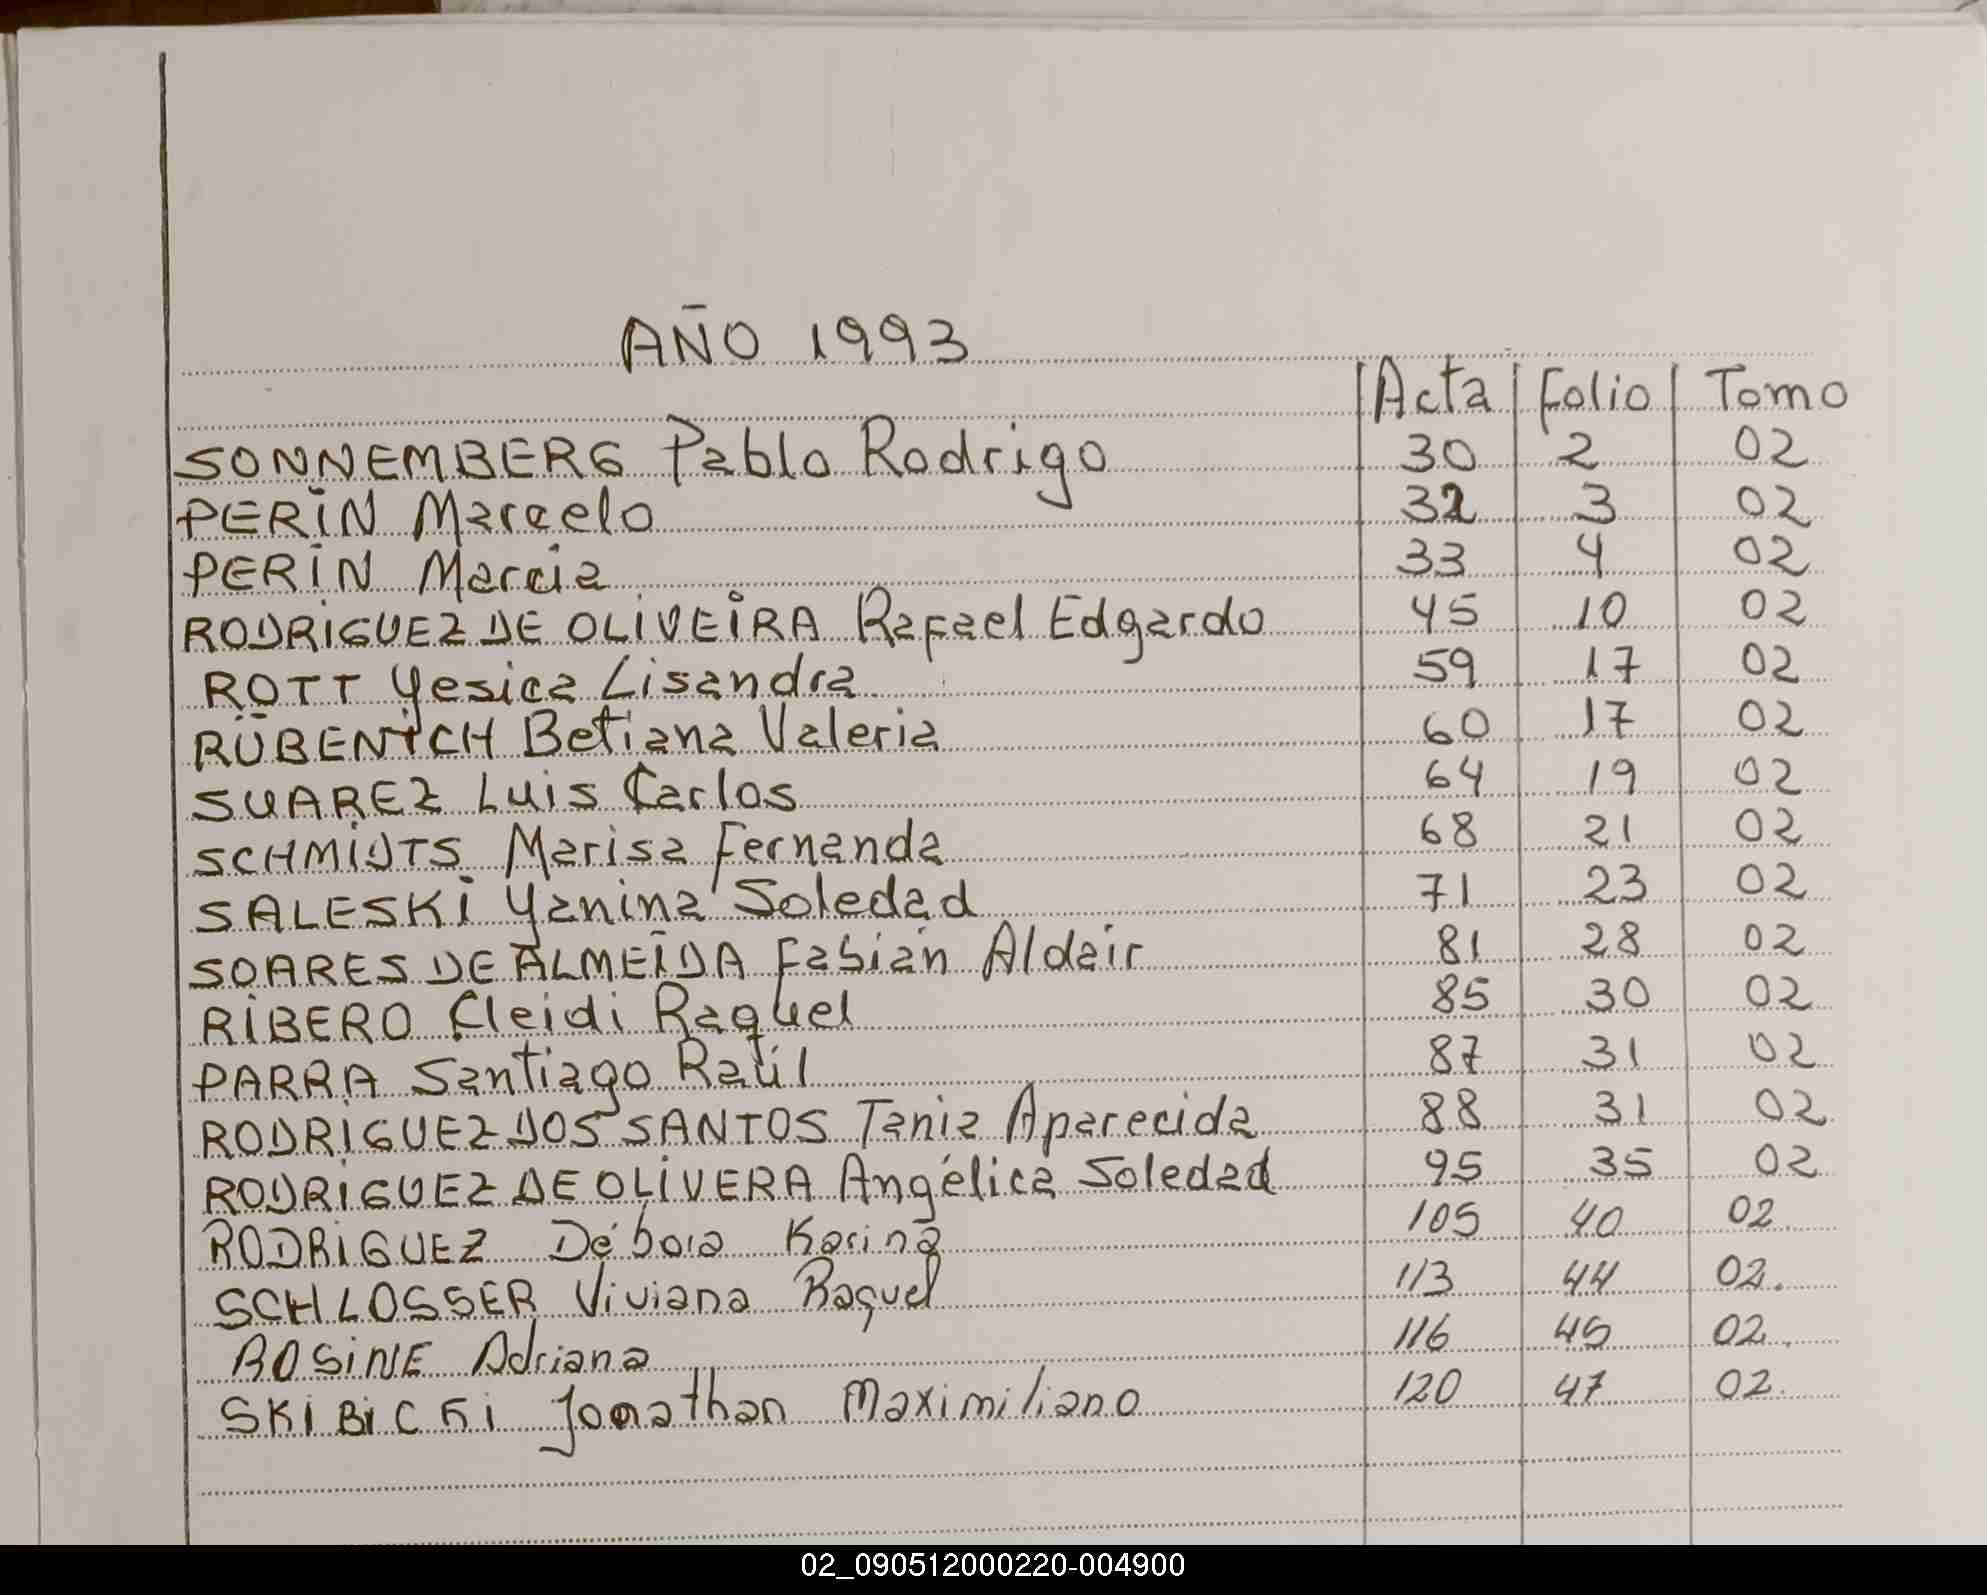 AÑO 1993
Acta Folio Tomo
SONNEMBERG Pablo Rodrigo 30 2 02
PERIN Marcelo 32 3 02
PERIN Marcia 33 4 02
RODRIGUEZ DE OLIVEIRA Rafael Edgardo 45 10 02
ROTT Yesica Lisandra 59 17 02
RÜBENICH Betiana Valeria 60 17 02
SUAREZ Luis Carlos 64 19 02
SCHMIDTS Marisa Fernanda 68 21 02
SALESKI Yanina Soledad 71 23 02
SOARES DE ALMEIDA Fabián Aldair 81 28 02
RIBERO Cleidi Raquel 85 30 02
PARRA Santiago Raúl 87 31 02
RODRIGUEZ DOS SANTOS Tania Aparecida 88 31 02
RODRIGUEZ DE OLIVERA Angélica Soledad 95 35 02
RODRIGUEZ Débora Karina 105 40 02
SCHLOSSER Viviana Raquel 113 44 02.
ROSINE Adriana 116 45 02.
SKIBICKI Jonathan Maximiliano 120 47 02.
02_090512000220-004900